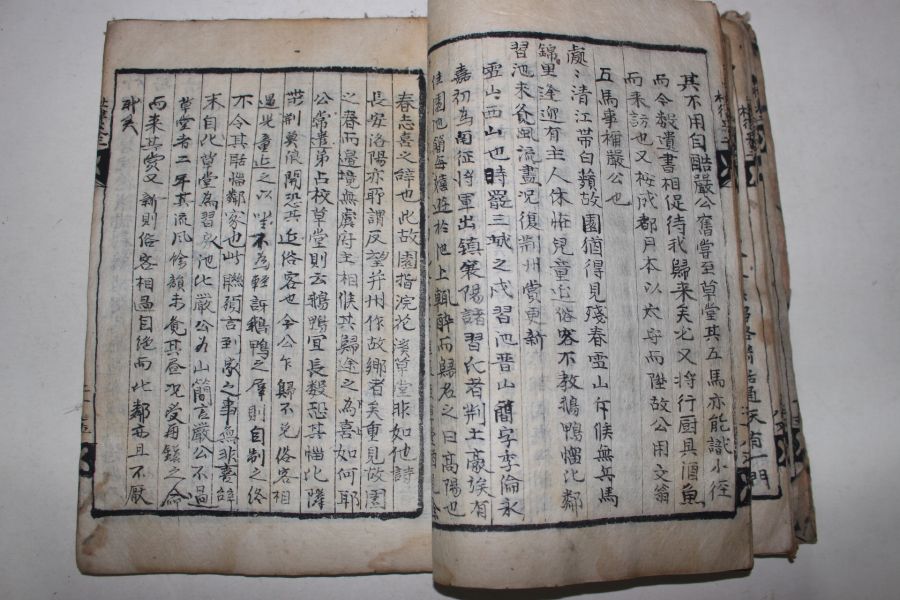 其不用自酤嚴公舊嘗至草堂其五馬亦能識小徑
而今數遣書相促待我歸来夫尤又将行厨具酒魚
而来訪也又按成都月本以太守而陞故公用文翁
五馬事稱嚴公也
處〻清江帶白蘋故園猶得見殘春雪山斥候無兵馬
錦里逢迎有主人休怪兒童延俗客不教鵝鴨惱比鄰
習池未覺風流盡況復荊州賞更新
雪山西山也時罷三城之戍習池晋山簡字季倫永
嘉初為南征將軍出鎮襄陽諸習氏者荆土豪族有
佳園池簡每嬉遊於池上輒醉而歸名之曰高陽池
春志喜之辞也此故園指浣花溪草堂非如他詩
長安洛陽亦耶謂反望并州作故鄉者矣重見故園
之春而邊境無虞府主相候其歸途之為喜如何耶
公常遣弟占校草堂則云鵝鴨宜長數恐其惱比隣
柴荆莫浪開恐其近俗客也今公乍歸不免俗客相
過此童延之以坐不為輕訝鵝鴨之 則自制之
不令其聒惱鄰家也此聯預言到家之事無非喜辞
末自比草堂為習家池比嚴公为山簡言嚴公不過
草堂者二年其流風餘韻未覺其盡况受再鎮之命
而来其賞又新則俗客相過自绝而比鄰亦且不厭
矣